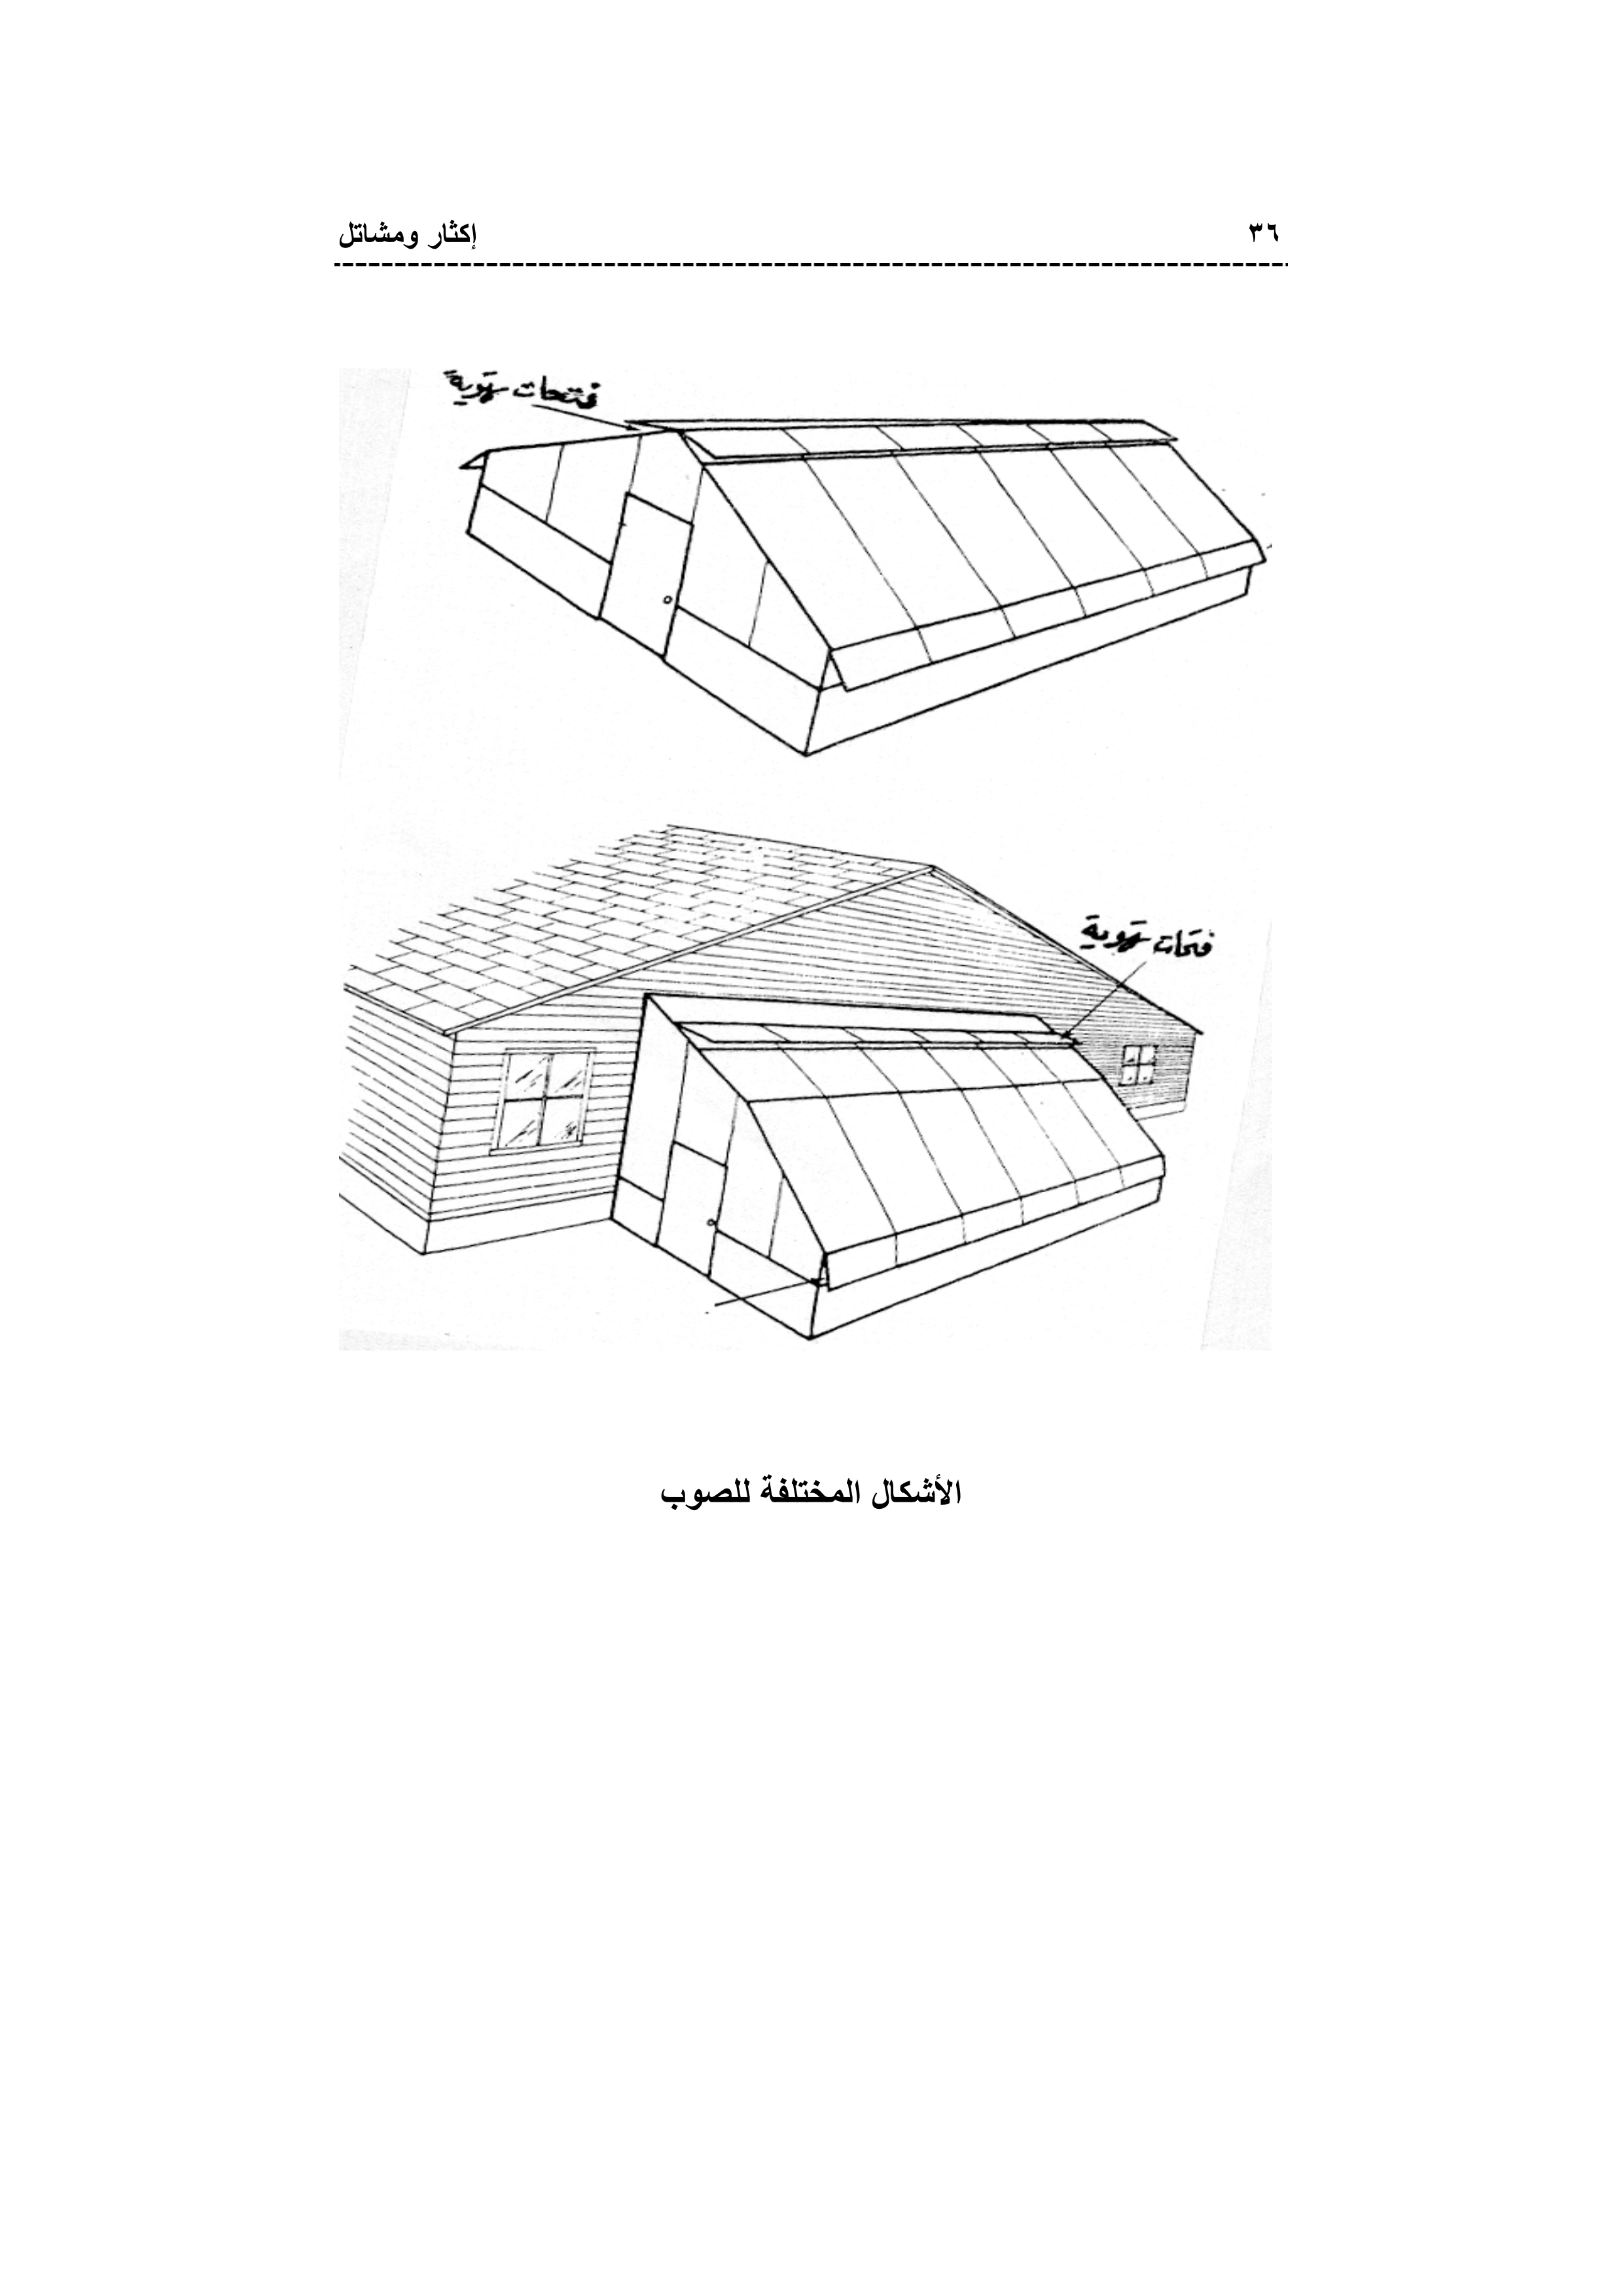 ٣٦ إكثار ومشاتل
فتحات تهوية
فتحات تهوية
الأشكال المختلفة للصوب